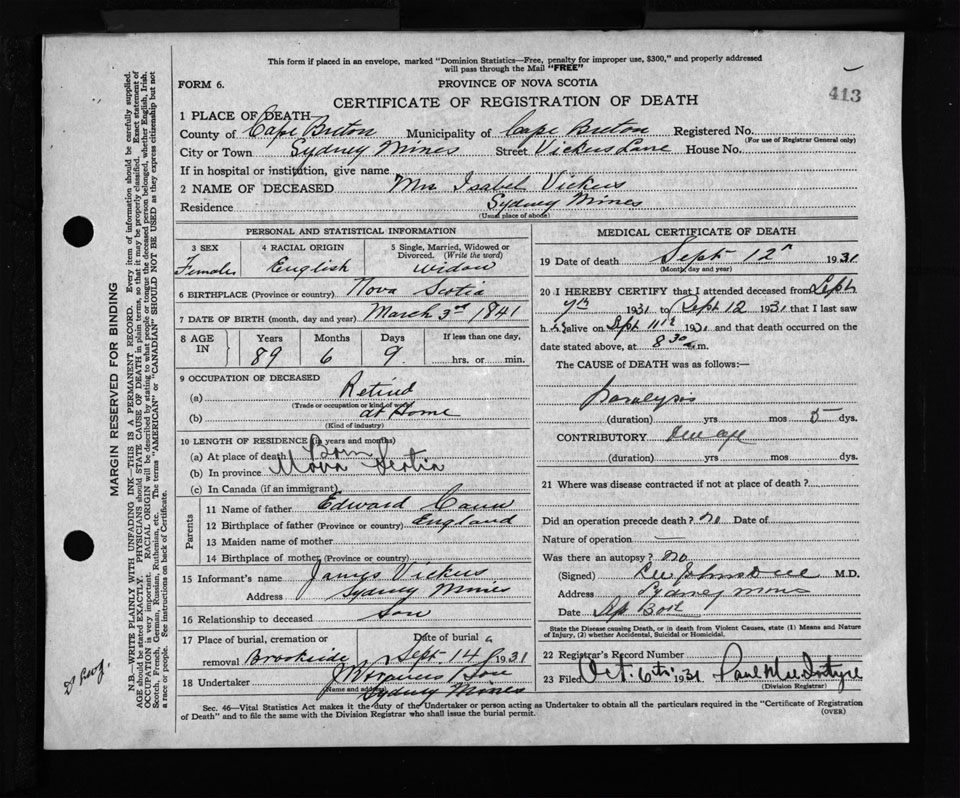 This form if placed in an envelope, marked "Dominion Statistics—Free, penalty for improper use, $300," and properly addressed
will pass through the Mail "FREE"
FORM 6.
PROVINCE OF NOVA SCOTIA
413
CERTIFICATE OF REGISTRATION OF DEATH
1 PLACE OF DEATH
County of Cape Breton Municipality of Cape Breton Registered No.
(For use of Registrar General only)
City or Town Sydney Mines Street Vickers Lane House No.
If in hospital or institution, give name
2 NAME OF DECEASED Mrs Isabel Vickers
Residence Sydney Mines
(Usual place of abode)
PERSONAL AND STATISTICAL INFORMATION
3 SEX 4 RACIAL ORIGIN 5 Single, Married, Widowed or Divorced. (Write the word)
Female English widow
6 BIRTHPLACE (Province or country) Nova Scotia
7 DATE OF BIRTH (month, day and year) March 3rd 1841
8 AGE IN Years Months Days If less than one day,
89 6 9 hrs. or min.
9 OCCUPATION OF DECEASED
(a) Retired
(Trade or occupation or kind of work)
(b) at Home
(Kind of industry)
10 LENGTH OF RESIDENCE (in years and months)
(a) At place of death Born
(b) In province Nova Scotia
(c) In Canada (if an immigrant)
Parents
11 Name of father Edward
12 Birthplace of father (Province or country) England
13 Maiden name of mother
14 Birthplace of mother (Province or country)
15 Informant's name James Vickers
Address Sydney Mines
16 Relationship to deceased Son
17 Place of burial, cremation or Date of burial
removal Brookside Sept. 14 1931
18 Undertaker & Son
(Name and address) Sydney Mines
MEDICAL CERTIFICATE OF DEATH
19 Date of death Sept 12th 1931
(Month, day and year)
20 I HEREBY CERTIFY that I attended deceased from Sept
7th 1931 to Sept 12 1931 that I last saw
h er alive on Sept 11th 1931 and that death occurred on
date stated above, at 8 30 a.m.
The CAUSE of DEATH was as follows:—
Paralysis
(duration) yrs mos 5 dys.
CONTRIBUTORY Old age
(duration) yrs. mos. dys.
21 Where was disease contracted if not at place of death?
Did an operation precede death? no Date of
Nature of operation —
Was there an autopsy? no
(Signed) M.D.
Address Sydney Mines
Date
State the Disease causing Death, or in death from Violent Causes, state (1) Means and Nature of Injury, (2) whether Accidental, Suicidal or Homicidal.
22 Registrar's Record Number
23 Filed Oct. 6th 1931 Paul McIntyre
(Division Registrar)
Sec. 46—Vital Statistics Act makes it the duty of the Undertaker or person acting as Undertaker to obtain all the particulars required in the "Certificate of Registration
of Death" and to file the same with the Division Registrar who shall issue the burial permit.
(OVER)
MARGIN RESERVED FOR BINDING
N.B.—WRITE PLAINLY WITH UNFADING INK—THIS IS A PERMANENT RECORD. Every item of information should be carefully supplied.
AGE should be stated EXACTLY. PHYSICIANS should STATE CAUSE OF DEATH in plain terms, so that it may be properly classified. Exact statement of
OCCUPATION is very important. RACIAL ORIGIN will be described by stating to what people or tongue the deceased person belonged, whether English, Irish,
Scotch, French, German, Russian, Ruthenian, etc. The terms "AMERICAN" or "CANADIAN" SHOULD NOT BE USED as they express citizenship but not
a race or people. See instructions on back of Certificate.